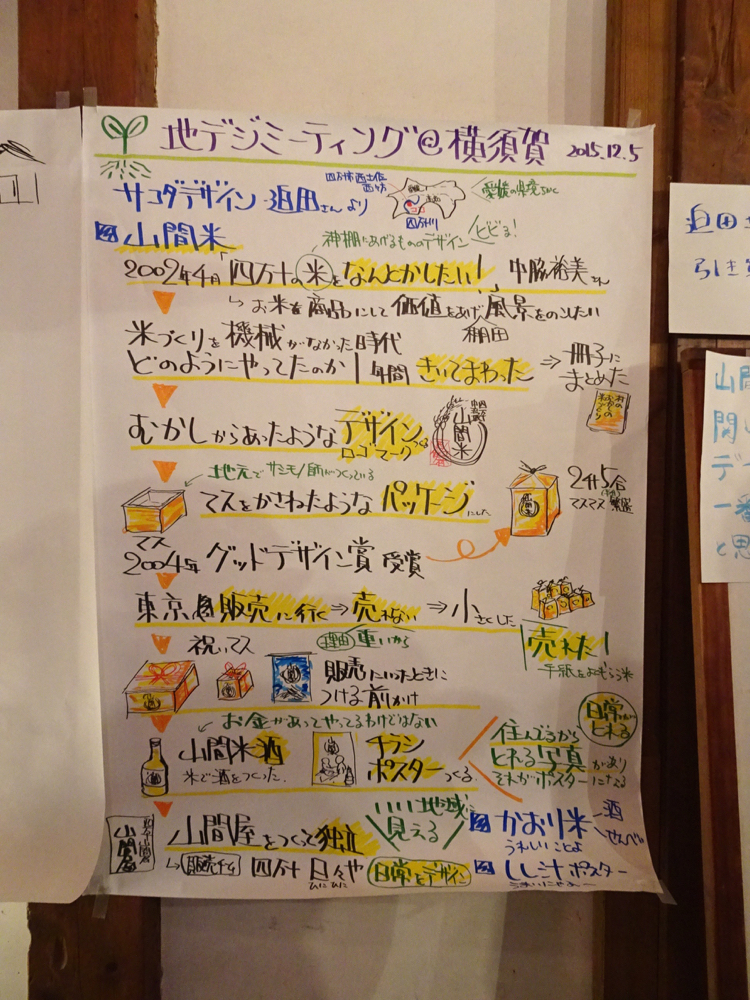 地デジミーティング@横須賀 2015.12.5
サコダデザイン 迫田さんより
愛媛の県境ちかく
四万十川
山間米
神棚にあげるもののデザイン
とどろ!
2002年4月「四万十の米をなんとかしたい!」中脇裕美さん
お米を商品にして価値をあげ風景をのこしたい
棚田
米づくりを機械がなかった時代
どのようにやってたのか1年間きいてまわった ⇒ 冊子にまとめた
むかしからあったようなデザイン
ロゴマークつくる
山間米
地元で サシモノ師がつくっている
マスをかさねたようなパッケージにした
2升5合
マスマス繁盛
マス
2004年 グッドデザイン賞 受賞
東京 販売に行く⇒売れない ⇒小さくした
理由 重いから
売れた!
手紙をおもらう米
祝いマス
販売にいったときに
つける前かけ
お金があってやってるわけではない
山間米酒
米で酒をつくった.
チラシ
ポスターつくる
住んでるから
とれる写真があり
それがポスターになる
日常がとれる
山間屋をつくって独立
いい地域に
見える
山間屋
販売する 四万十 日々や
ひにひに
日常をデザイン
かおり米
酒
せんべい
うれしいことよ
しし汁ポスター
迫田
山間